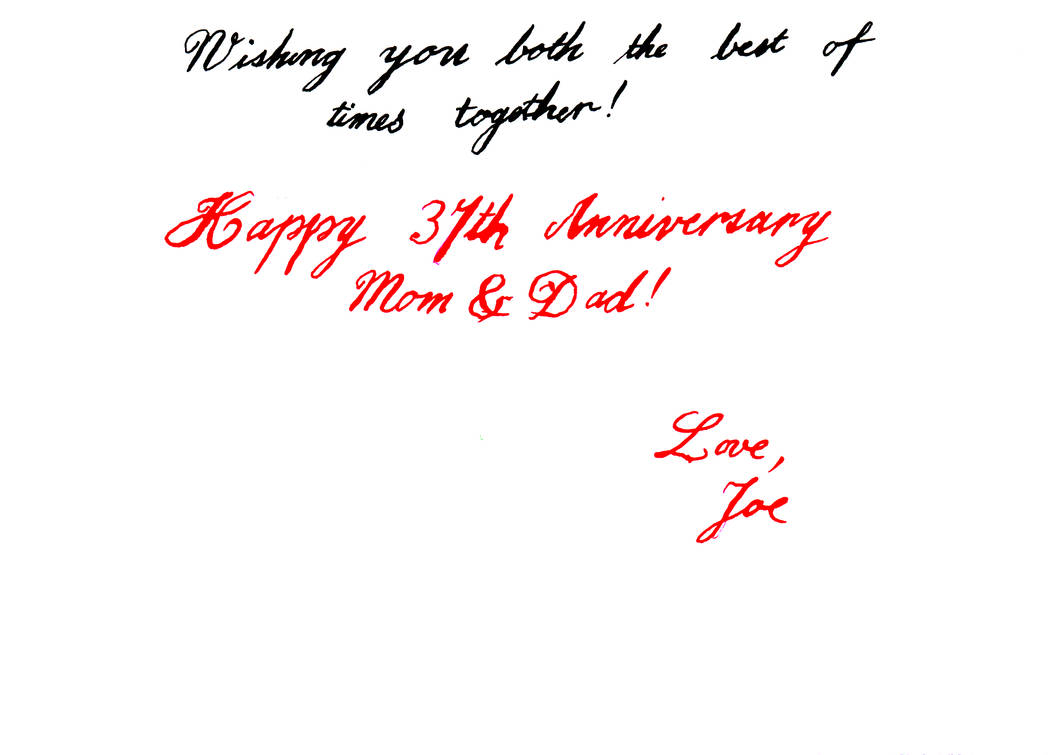 Wishing you both the best of
times together!
Happy 37th Anniversary
Mom & Dad!
Love,
Joe